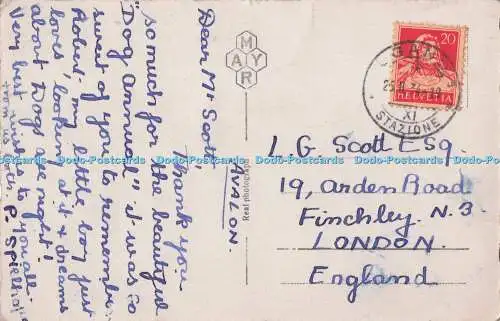 AVALON.
Dear Mr Scott,
Thank you
so much for the beautiful
"Dog Annual" it was so
sweet of you to remember
Robert. my little boy just
loves looking at it & dreams
about Dogs are night!
Very best wishes to you all.
from us both. P. Spielhof
MAY
Real photograph
20
HELVETIA
XI
STAZIONE
L. G. Scott Esq.
19, Arden Road
Finchley. N. 3.
LONDON.
England
Dodo-Postcards Dodo-Postcards Dodo-Postcards Dodo-Postcards Dodo-Postcards